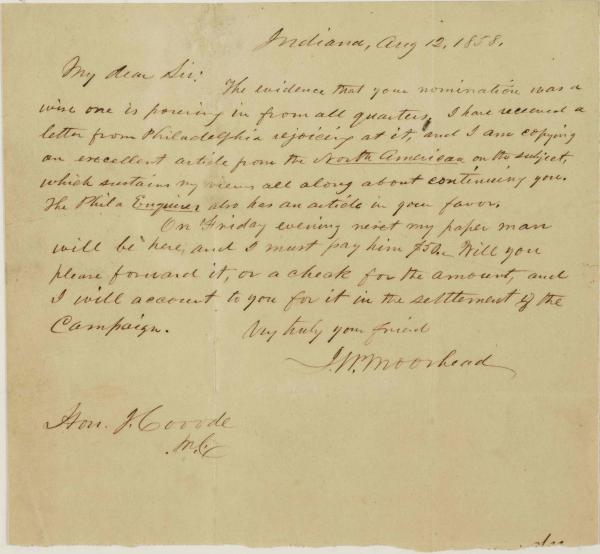 Indiana, Aug 12, 1858.
My dear Sir:
The evidence that your nomination was a
wise one is pouring in from all quarters. I have received a
letter from Philadelphia rejoicing at it, and I am copying
an excellent article from the North American on the subject,
which sustains my views all along about continuing you.
The Phila Enquirer also has an article in your favor.
On Friday evening next my paper man
will be here, and I must pay him $50. Will you
please forward it, or a check for the amount, and
I will account to you for it in the settlement of the
Campaign.
Very truly your friend
J. W. Moorhead
Hon. J. Covode
M.C.